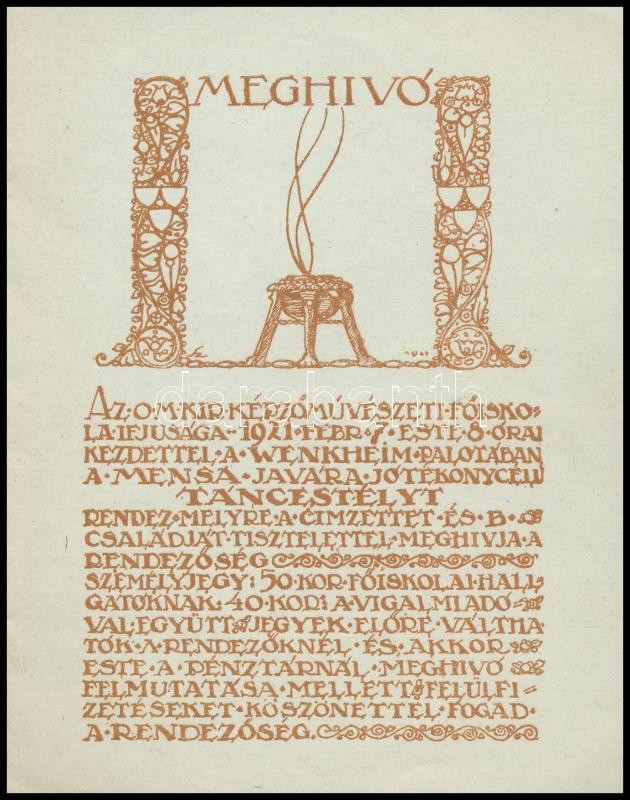 MEGHIVÓ
1921
AZ·O·M·KIR·KÉPZŐMŰVÉSZETI·FŐISKO-
LA·IFJUSÁGA·1921·FEBR·7·ESTE·8·ÓRAI
KEZDETTEL·A·WENKHEIM·PALOTÁBAN
A·MENSA·JAVÁRA·JÓTÉKONYCÉLU
TÁNCESTÉLYT
RENDEZ·MELYRE·A·CIMZETTET·ÉS·B·
CSALÁDJÁT·TISZTELETTEL·MEGHIVJA·A
RENDEZŐSÉG
SZEMÉLYJEGY: 50·KOR·FŐISKOLAI·HALL
GATÓKNAK: 40·KOR: A·VIGALMIADÓ-
VAL·EGYÜTT JEGYEK·ELŐRE·VÁLTHA
TÓK·A·RENDEZŐKNÉL·ÉS·AKKOR
ESTE·A·PÉNZTÁRNÁL·MEGHIVÓ
FELMUTATÁSA·MELLETT FELÜLFI-
ZETÉSEKET·KÖSZÖNETTEL·FOGAD·
A·RENDEZŐSÉG.
darabanth